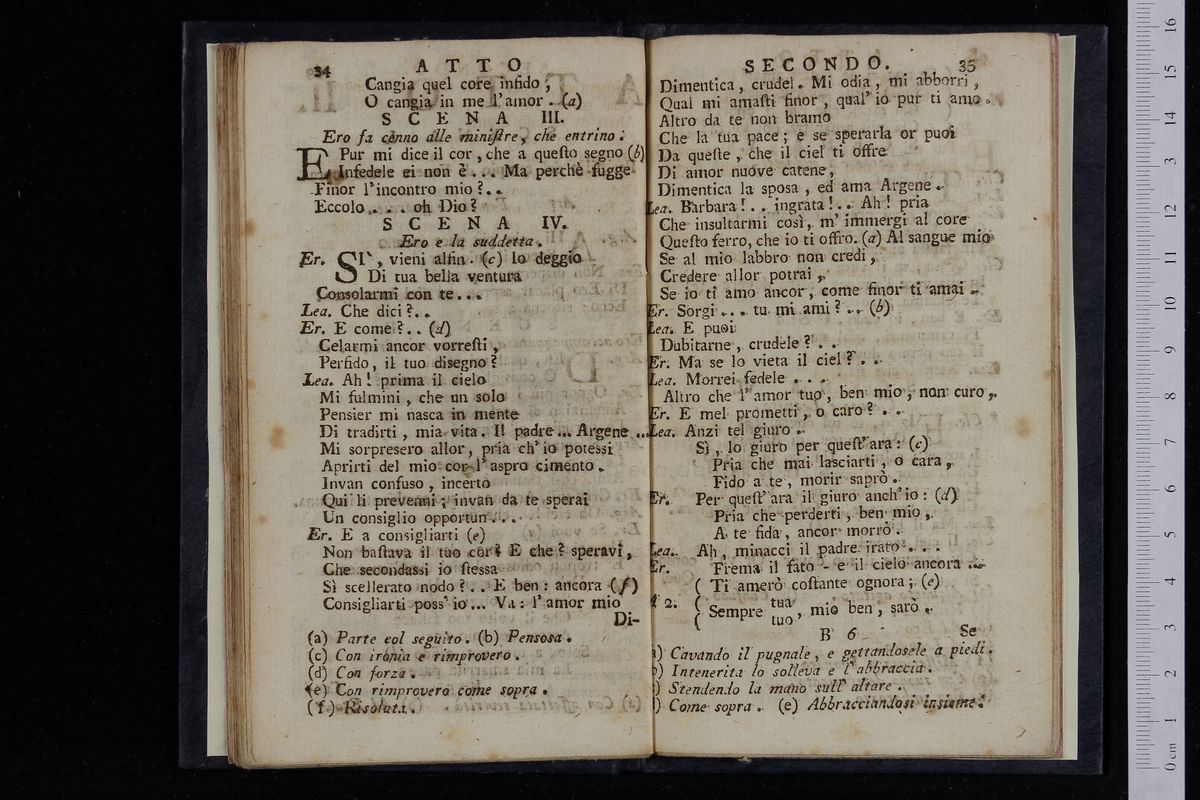 34 ATTO
Cangia quel core infido;
O cangia in me l'amor. (a)
SCENA III.
Ero fa cenno alle ministre, che entrino.
E Pur mi dice il cor, che a questo segno (b)
Infedele ei non è... Ma perchè fugge
Finor l'incontro mio?..
Eccolo.... oh Dio?
SCENA IV.
Ero e la suddetta.
Er. SI', vieni alfin. (c) Io deggio
Di tua bella ventura
Consolarmi con te...
Lea. Che dici?..
Er. E come?.. (d)
Celarmi ancor vorresti,
Perfido, il tuo disegno?
Lea. Ah! prima il cielo
Mi fulmini, che un solo
Pensier mi nasca in mente
Di tradirti, mia vita. Il padre... Argene...
Mi sorpresero allor, pria ch'io potessi
Aprirti del mio cor l'aspro cimento.
Invan confuso, incerto
Qui li prevenni; invan da te sperai
Un consiglio opportun...
Er. E a consigliarti (e)
Non bastava il tuo cor? E che? speravi,
Che secondassi io stessa
Sì scellerato nodo?.. E ben: ancora (f)
Consigliarti poss'io... Va: l'amor mio
Di-
(a) Parte col seguito. (b) Pensosa.
(c) Con ironia e rimprovero.
(d) Con forza.
(e) Con rimprovero come sopra.
(f) Risoluta.
SECONDO. 35
Dimentica, crudel. Mi odia, mi abborri,
Qual mi amasti finor, qual'io pur ti amo.
Altro da te non bramo
Che la tua pace; e se sperarla or puoi
Da queste, che il ciel ti offre
Di amor nuove catene,
Dimentica la sposa, ed ama Argene.
Lea. Barbara!.. ingrata!.. Ah! pria
Che insultarmi così, m'immergi al core
Questo ferro, che io ti offro. (a) Al sangue mio
Se al mio labbro non credi,
Credere allor potrai,
Se io ti amo ancor, come finor ti amai.
Er. Sorgi... tu mi ami?.. (b)
Lea. E puoi
Dubitarne, crudele?..
Er. Ma se lo vieta il ciel?..
Lea. Morrei fedele...
Altro che l'amor tuo, ben mio, non curo,
Er. E mel prometti, o caro?..
Lea. Anzi tel giuro.
Sì, lo giuro per quest'ara: (c)
Pria che mai lasciarti, o cara,
Fido a te, morir saprò.
Er. Per quest'ara il giuro anch'io: (d)
Pria che perderti, ben mio,
A te fida, ancor morrò.
Lea. Ah, minacci il padre irato...
Er. Frema il fato - e il cielo ancora..
( Ti amerò costante ognora; (e)
a 2. ( Sempre tua tuo, mio ben, sarò.
B 6 Se
a) Cavando il pugnale, e gettandosele a piedi.
b) Intenerita lo solleva e l'abbraccia.
c) Stendendo la mano sull'altare.
d) Come sopra. (e) Abbracciandosi insieme.
0 cm 1 2 3 4 5 6 7 8 9 10 11 12 13 14 15 16